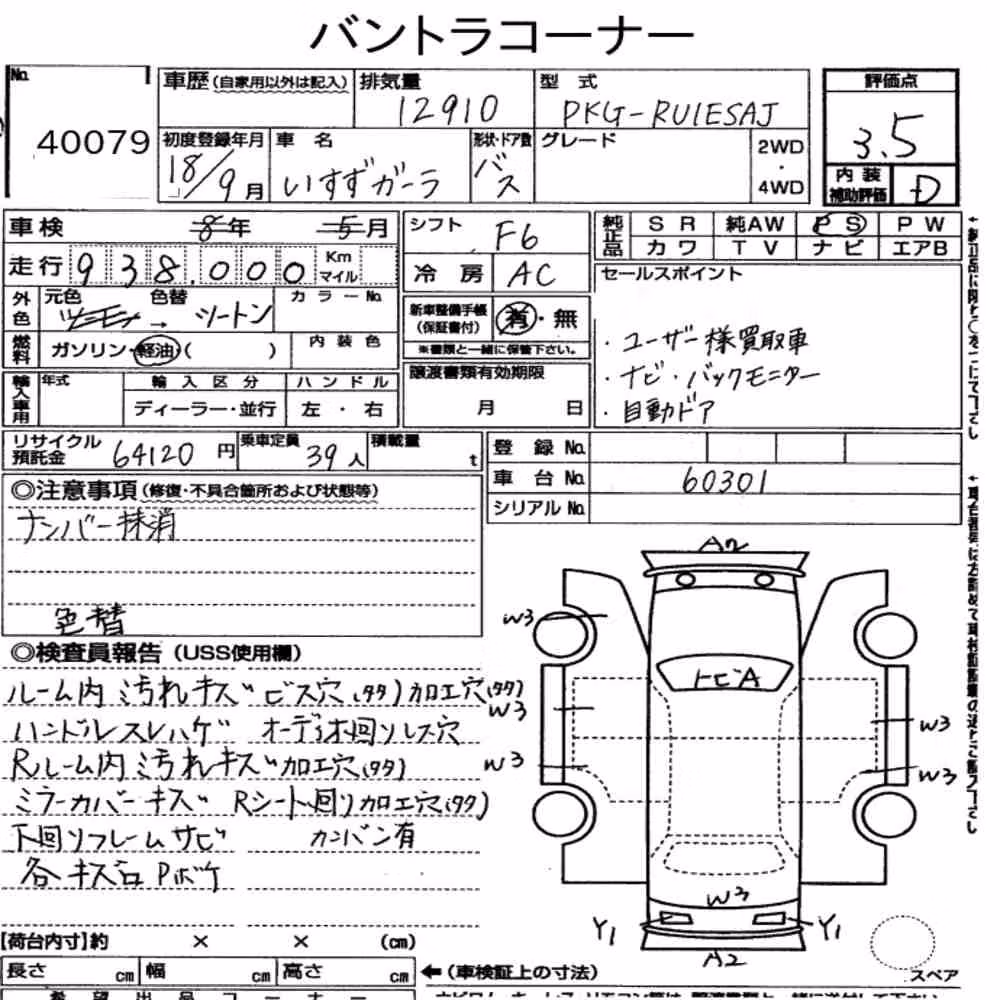 バントラコーナー
No. 40079
車歴(自家用以外は記入) 排気量 12910 型式 PKG-RU1ESAJ 評価点 3.5
初度登録年月 18/9月 車名 いすずガーラ 形状・ドア数 バス グレード 2WD・4WD 内装補助評価 D
車検 8年 5月 シフト F6 純正品 SR 純AW PS PW
カワ TV ナビ エアB
走行 938,000 Km マイル 冷房 AC セールスポイント
外色 元色 色替 → ツートン カラーNo. 新車整備手帳(保証書付) 有・無
※書類と一緒に保管下さい。
燃料 ガソリン・軽油・( ) 内装色
・ユーザー様買取車
・ナビ・バックモニター
・自動ドア
輸入車用 年式 輸入区分 ハンドル 譲渡書類有効期限
ディーラー・並行 左・右 月 日
リサイクル預託金 64120円 乗車定員 39人 積載量 t
登録No.
車台No. 60301
シリアルNo.
◎注意事項(修復・不具合箇所および状態等)
ナンバー抹消
色替
◎検査員報告(USS使用欄)
ルーム内汚れキズ ビス穴(タタ)加工穴(タタ)
ハンドルスレハゲ オーディオ回りビス穴
Rルーム内汚れキズ加工穴(タタ)
ミラーカバーキズ Rシート回り加工穴(タタ)
下回りフレームサビ カンバン有
各キズ凸Pボケ
A2
W3
トビA
W3
W3
W3
W3
W3
Y1
Y1
A2
スペア
【荷台内寸】約 × × (cm)
長さ cm 幅 cm 高さ cm ←(車検証上の寸法)
希望出品コーナー